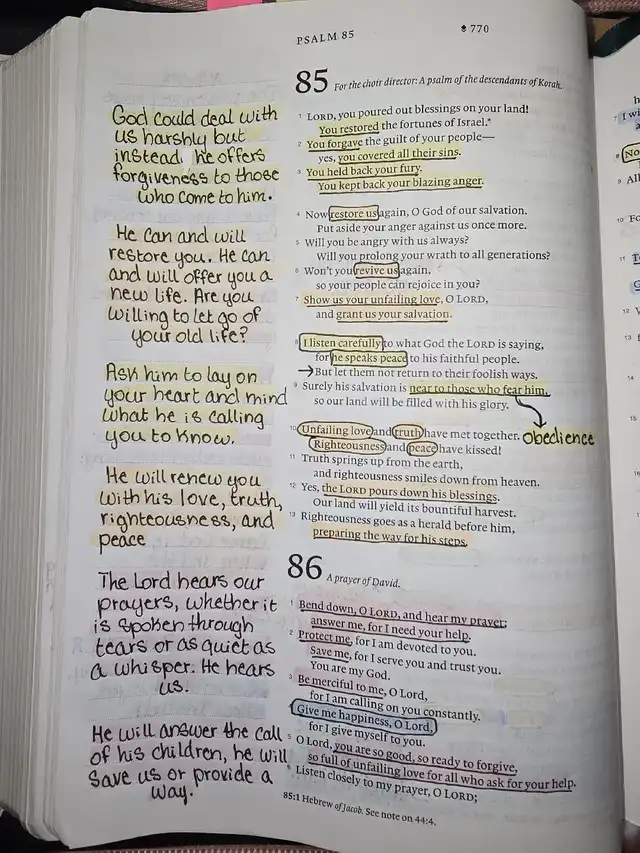 PSALM 85
770
God could deal with
us harshly but
instead he offers
forgiveness to those
who come to him.
He can and will
restore you. He can
and will offer you a
new life. Are you
willing to let go of
your old life?
Ask him to lay on
your heart and mind
what he is calling
you to know.
He will renew you
with his love, truth,
righteousness, and
peace
The Lord hears our
prayers, whether it
is spoken through
tears or as quiet as
a whisper. He hears
us.
He will answer the call
of his children, he will
save us or provide a
way.
85 For the choir director: A psalm of the descendants of Korah.
1 LORD, you poured out blessings on your land!
You restored the fortunes of Israel.*
2 You forgave the guilt of your people—
yes, you covered all their sins.
3 You held back your fury.
You kept back your blazing anger.
4 Now restore us again, O God of our salvation.
Put aside your anger against us once more.
5 Will you be angry with us always?
Will you prolong your wrath to all generations?
6 Won't you revive us again,
so your people can rejoice in you?
7 Show us your unfailing love, O LORD,
and grant us your salvation.
8 I listen carefully to what God the LORD is saying,
for he speaks peace to his faithful people.
But let them not return to their foolish ways.
9 Surely his salvation is near to those who fear him,
so our land will be filled with his glory.
obedience
10 Unfailing love and truth have met together.
Righteousness and peace have kissed!
11 Truth springs up from the earth,
and righteousness smiles down from heaven.
12 Yes, the LORD pours down his blessings.
Our land will yield its bountiful harvest.
13 Righteousness goes as a herald before him,
preparing the way for his steps.
86 A prayer of David.
1 Bend down, O LORD, and hear my prayer;
answer me, for I need your help.
2 Protect me, for I am devoted to you.
Save me, for I serve you and trust you.
You are my God.
3 Be merciful to me, O Lord,
for I am calling on you constantly.
4 Give me happiness, O Lord,
for I give myself to you.
5 O Lord, you are so good, so ready to forgive,
so full of unfailing love for all who ask for your help.
6 Listen closely to my prayer, O LORD;
85:1 Hebrew of Jacob. See note on 44:4.